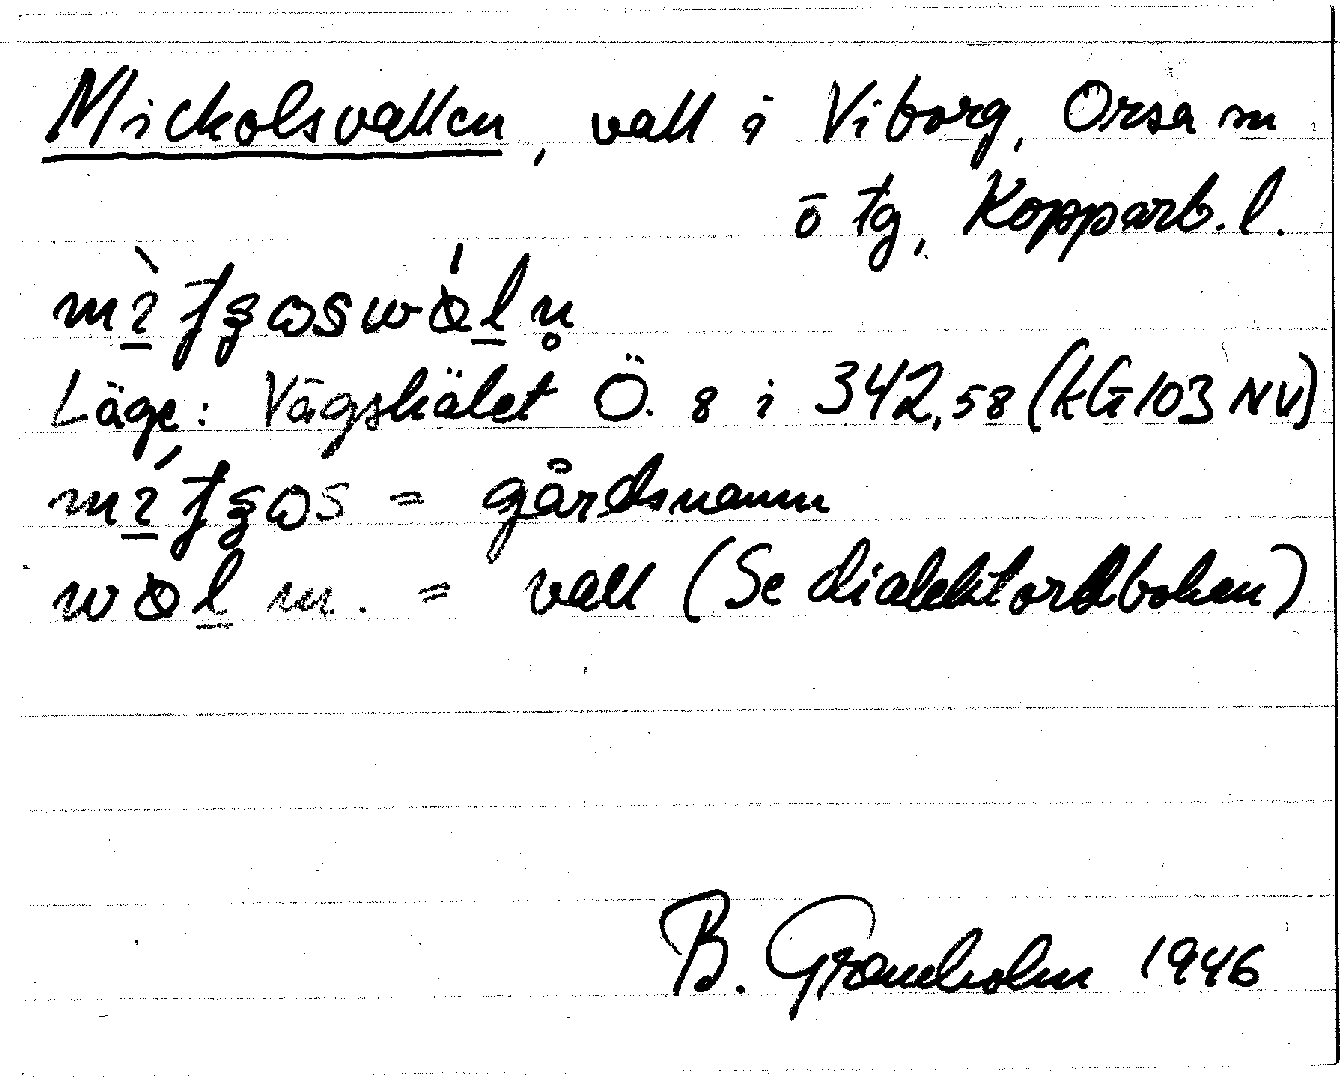 Mickolsvallen, vall i Viborg, Orsa sn
ö tg, Kopparb. l.
Läge: Vägskälet Ö. 8 i 342,58 (kG103 NV)
= gårdsnamn
m. = vall (Se dialektordboken)
B. Gramholm 1946